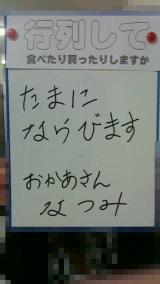 行列して
食べたり買ったりしますか
たまに
ならびます
おかあさん
なつみ